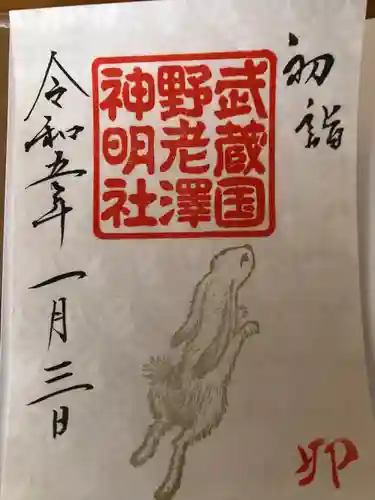 初詣
武蔵国
野老澤
神明社
令和五年 一月三日
卯